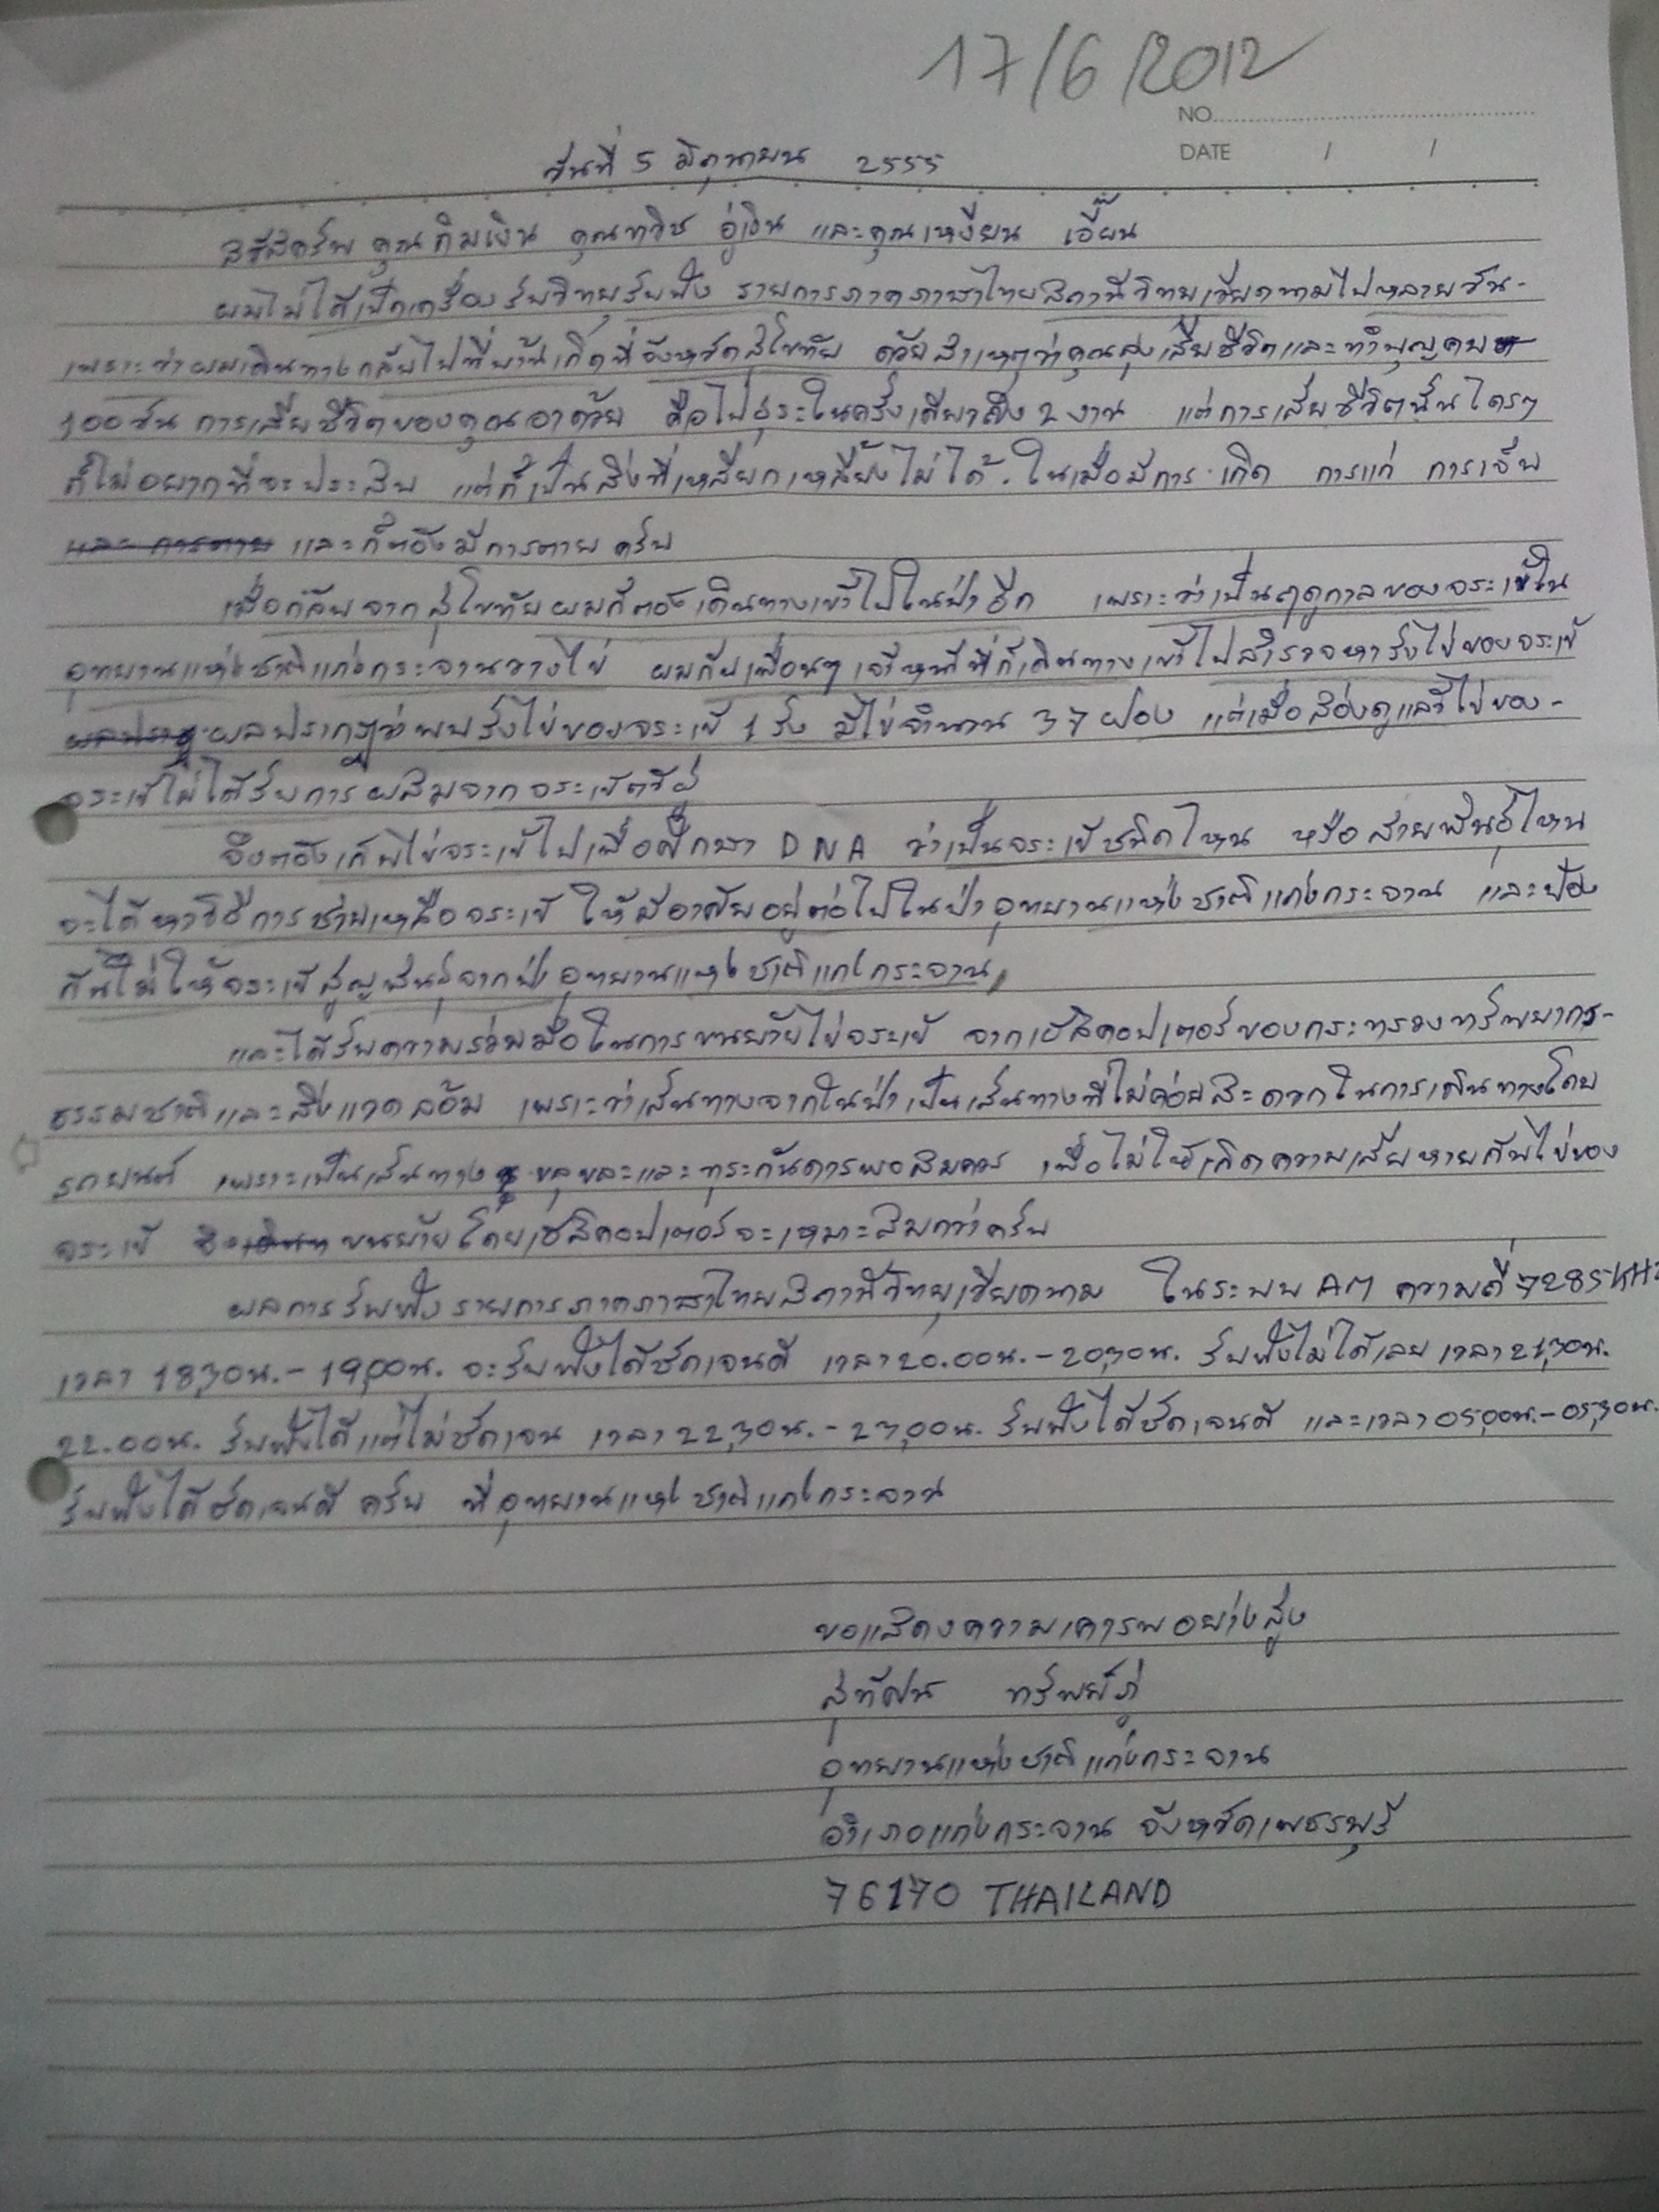 17/6/2012
NO.
DATE / /
วันที่ 5 มิถุนายน 2555
สวัสดีครับ คุณกิมเงิน คุณทวิช อู่เงิน และคุณเหงียน เอี๊ยน
ผมไม่ได้เปิดเครื่องรับวิทยุรับฟัง รายการภาคภาษาไทยสถานีวิทยุเวียดนามไปหลายวัน-
เพราะว่าผมเดินทางกลับไปที่บ้านเกิดที่จังหวัดสุโขทัย ด้วยสาเหตุว่าคุณลุงเสียชีวิตและทำบุญครบ
100 วัน การเสียชีวิตของคุณอาด้วย คือไปธุระในครั้งเดียวถึง 2 งาน แต่การเสียชีวิตนั้นใครๆ
ก็ไม่อยากที่จะประสบ แต่ก็เป็นสิ่งที่เหลียกเหลี้ยงไม่ได้. ในเมื่อมีการเกิด การแก่ การเจ็บ
และการตาย และก็ต้องมีการตายครับ
เมื่อกลับจากสุโขทัยผมก็ต้องเดินทางเข้าไปในป่าอีก เพราะว่าเป็นฤดูกาลของจระเข้ใน
อุทยานแห่งชาติแก่งกระจานวางไข่ ผมกับเพื่อนๆ เจ้าหน้าที่ก็เดินทางเข้าไปสำรวจหารังไข่ของจระเข้
ผลปราฏ ผลปรากฏว่าพบรังไข่ของจระเข้ 1 รัง มีไข่จำนวน 37 ฟอง แต่เมื่อส่องดูแล้วไข่ของ-
จระเข้ไม่ได้รับการผสมจากจระเข้ตัวผู้
จึงต้องเก็บไข่จระเข้ไปเพื่อศึกษา DNA ว่าเป็นจระเข้ชนิดไหน หรือสายพันธุ์ไหน
จะได้หาวิธีการช่วยเหลือจระเข้ ให้มีอาศัยอยู่ต่อไปในป่าอุทยานแห่งชาติแก่งกระจาน และป้อง
กันไม่ให้จระเข้สูญพันธุ์จากป่าอุทยานแห่งชาติแก่งกระจาน
และได้รับความร่วมมือในการขนย้ายไข่จระเข้ จากเฮลิคอปเตอร์ของกระทรวงทรัพยากร-
ธรรมชาติและสิ่งแวดล้อม เพราะว่าเส้นทางจากในป่าเป็นเส้นทางที่ไม่ค่อยสะดวกในการเดินทางโดย
รถยนต์ เพราะเป็นเส้นทาง ขลุขละและทุระกันดารพอสมควร เพื่อไม่ให้เกิดความเสียหายกับไข่ของ
จระเข้ ขนย้ายโดยเฮลิคอปเตอร์จะเหมาะสมกว่าครับ
ผลการรับฟังรายการภาคภาษาไทยสถานีวิทยุเวียดนาม ในระบบ AM ความถี่ 7285 KHz
เวลา 18,30น.- 19,00น. จะรับฟังได้ชัดเจนดี เวลา 20.00น.- 20,30น. รับฟังไม่ได้เลย เวลา 21,30น.
22.00น. รับฟังได้แต่ไม่ชัดเจน เวลา 22,30น.- 23,00น. รับฟังได้ชัดเจนดี และเวลา 05,00น.-05,30น.
รับฟังได้ชัดเจนดี ครับ ที่อุทยานแห่งชาติแก่งกระจาน
ขอแสดงความเคารพอย่างสูง
สุทัศน ทรัพย์ภู่
อุทยานแห่งชาติแก่งกระจาน
อำเภอแก่งกระจาน จังหวัดเพชรบุรี
76170 THAILAND